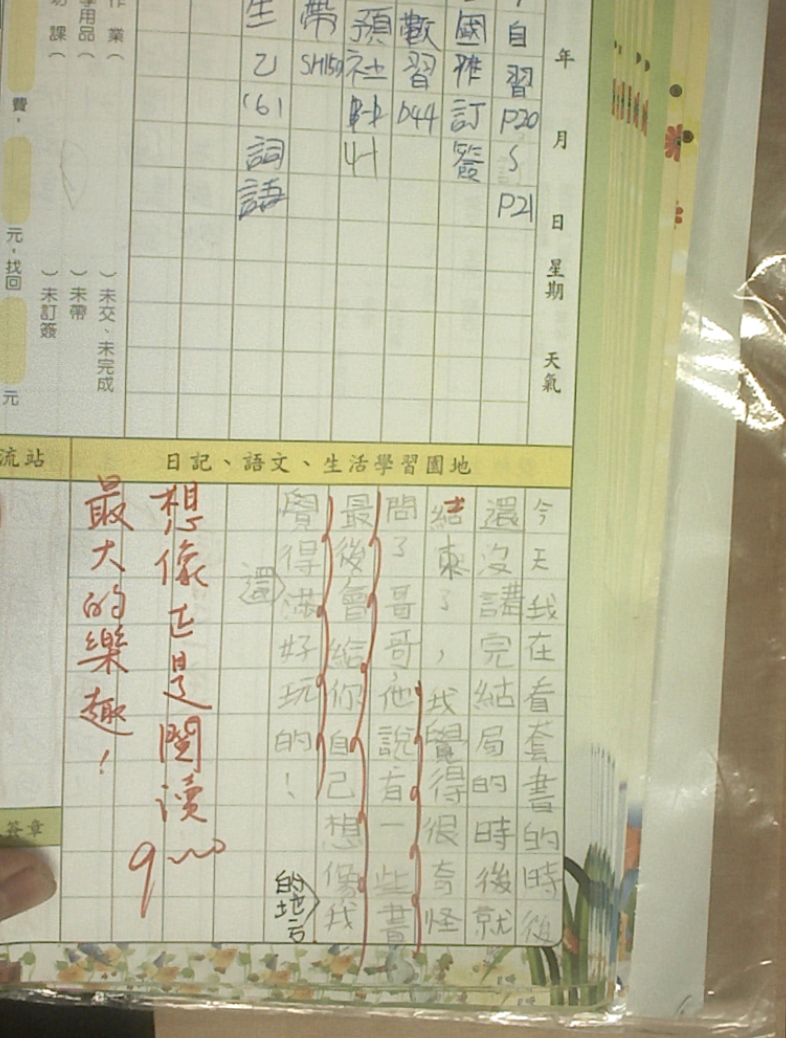 年　月　日　星期　天氣
自習P20~P21
國作訂簽
數習P44
預社4-1
帶SH150
生乙(6)詞語
作業(　)未交、未完成
學用品(　)未帶
功課(　)未訂簽
費,　元,找回　元
日記、語文、生活學習園地
流站
簽章
今天我在看套書的時後
還沒講完結局的時後就
結束了,我覺得很奇怪
問了哥哥,他說有一些書
最後會給你自己想像我
的地方
覺得滿好玩的!
還
想像正是閱讀
最大的樂趣!